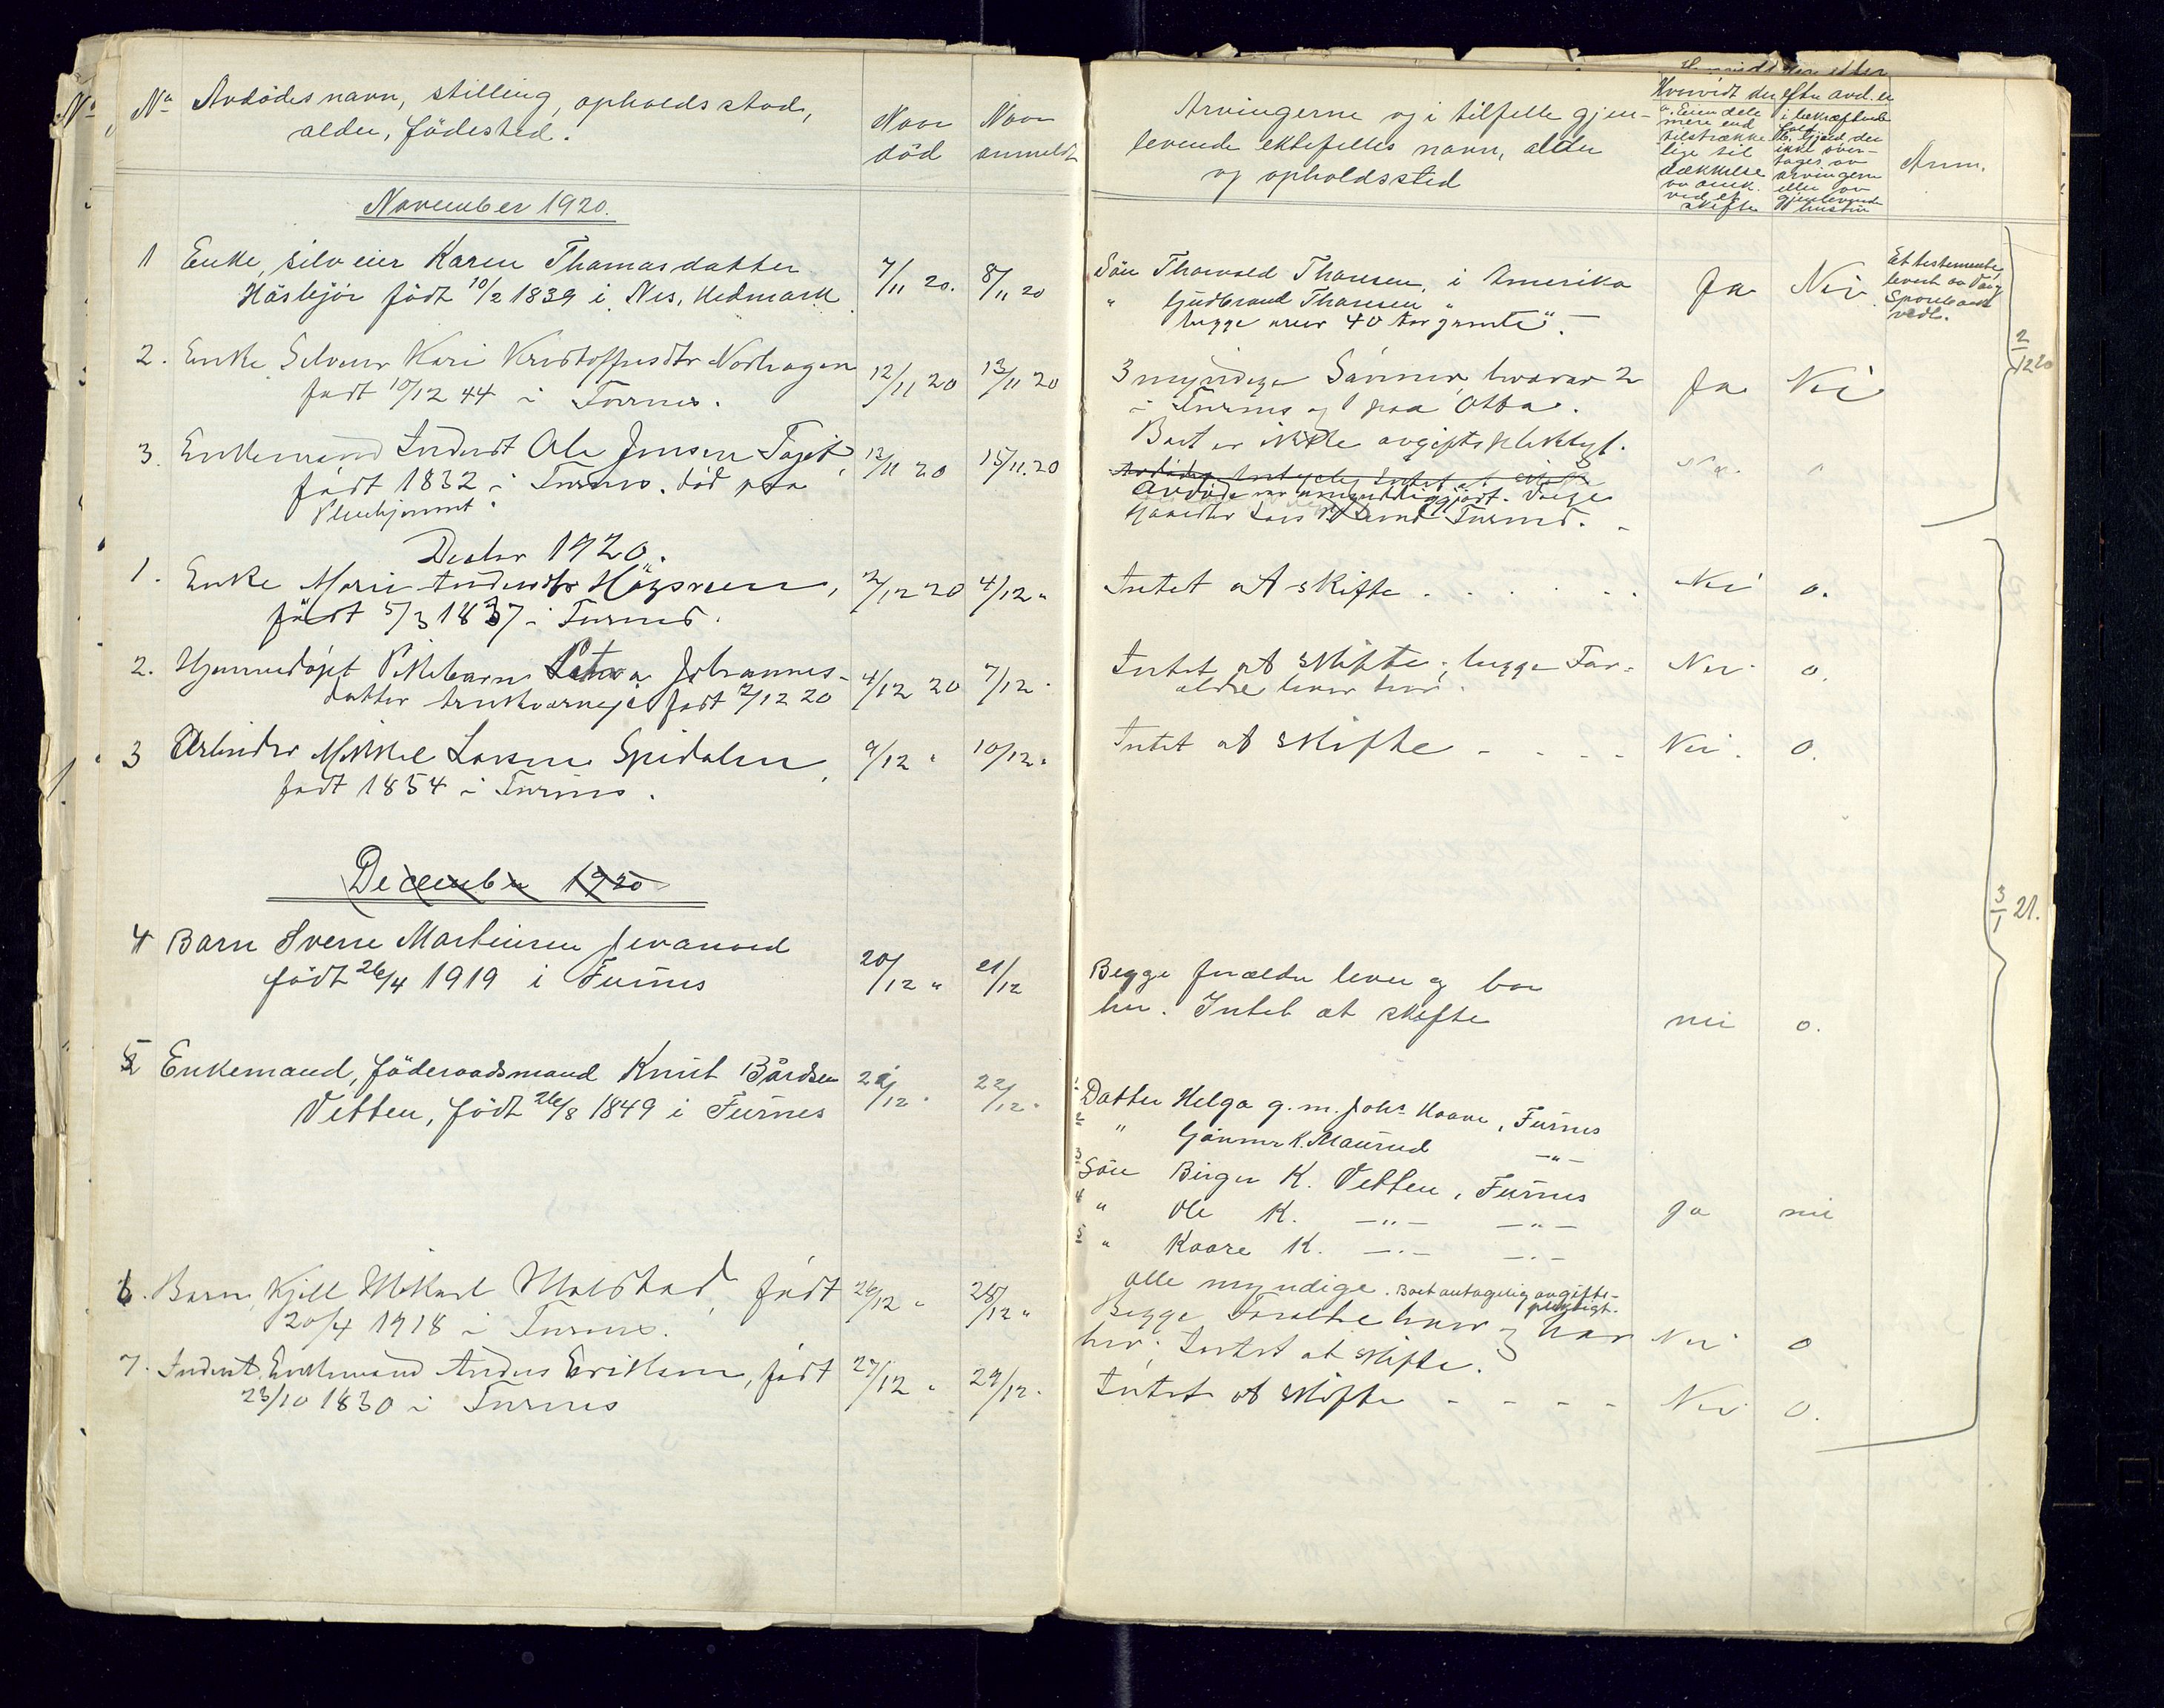 No
No Avdödes navn, stilling, opholdssted,
alder, födested.
Naar död
Naar anmeldt
November 1920.
1 Enke, selveier Karen Thomasdatter 7/11 20. 8/11 20
född 10/2 1839 i Nes, Hedmark.
2. Enke Selveier Kari Kristoffersdtr Norhagen 12/11 20 13/11 20
født 10/12 44 i Furnes.
3. Enkemand Inderst Ole Jensen 13/11 20 15/11. 20
født 1832 i Furnes. död paa
Pleiehjemmet.
Decbr 1920.
1. Enke Marie Andersdtr 2/12 20 4/12 "
født 5/3 1837 i Furnes.
2. Hjemmedøpt Pikebarn Petra Johannes- 4/12 20 7/12 "
datter født 2/12 20
3 Arbeider Mikkel Larsen Spidalen, 9/12 " 10/12 "
født 1854 i Furnes.
December 1920
4 Barn Sverre Martinsen Jevanord 20/12 " 21/12
född 26/4 1919 i Furnes
5 Enkemand, föderaadsmand Knut Bårdsen 21/12 " 22/12 "
Vetten, född 26/8 1849 i Furnes
6. Barn, Kjell født 26/12 " 28/12 "
20/4 1918 i Furnes.
7. Inderst Enkemand Anders Eriksen, født 27/12 " 29/12 "
23/10 1830 i Furnes
Arvingerne og i tilfelle gjen-
levende ektefelles navn, alder
og opholdssted
Hvorvidt der efter avd. er
a. Eiendele
mere end
tilstrække-
lige til
dækkelse
av omk.
ved et
skifte
b. Gjæld der
ikke over-
tages av
arvingerne
eller av
gjenlevende
hustru
Anm.
Sön Thorvald Thoresen, i Amerika Ja Nei
" Gudbrand Thoresen "
begge over 40 aar gamle.
Et testamente
levert av Vang
Sparebank
vedl.
2/12 20
3 myndige Sønner, hvorav 2 Ja Nei
i Furnes og 1 paa Otta.
Boet er ikke avgiftspliktig.
Avdöde var umyndiggjort. Verge
Gaardbr Lars Furnes.
Intet at skifte . . . . . . Nei 0.
Intet at skifte; begge For- Nei 0.
ældre lever her.
Intet at skifte - - - - Nei. 0.
3/1 21.
Begge forældre lever og bor
her. Intet at skifte nei 0.
1 Datter Helga g. m. Johs Haave, Furnes
2 " Gunner K. Maurud -"-
3 Sön Birger K. Vetten, Furnes
4 " Ole K. -"- -"- Ja nei
5 " Kaare K. -"- -"-
alle myndige. Boet antagelig avgifts-
pliktigt.
Begge Forældre lever og bor Nei 0
her; Intet at skifte.
Intet at skifte - - - - Nei 0.